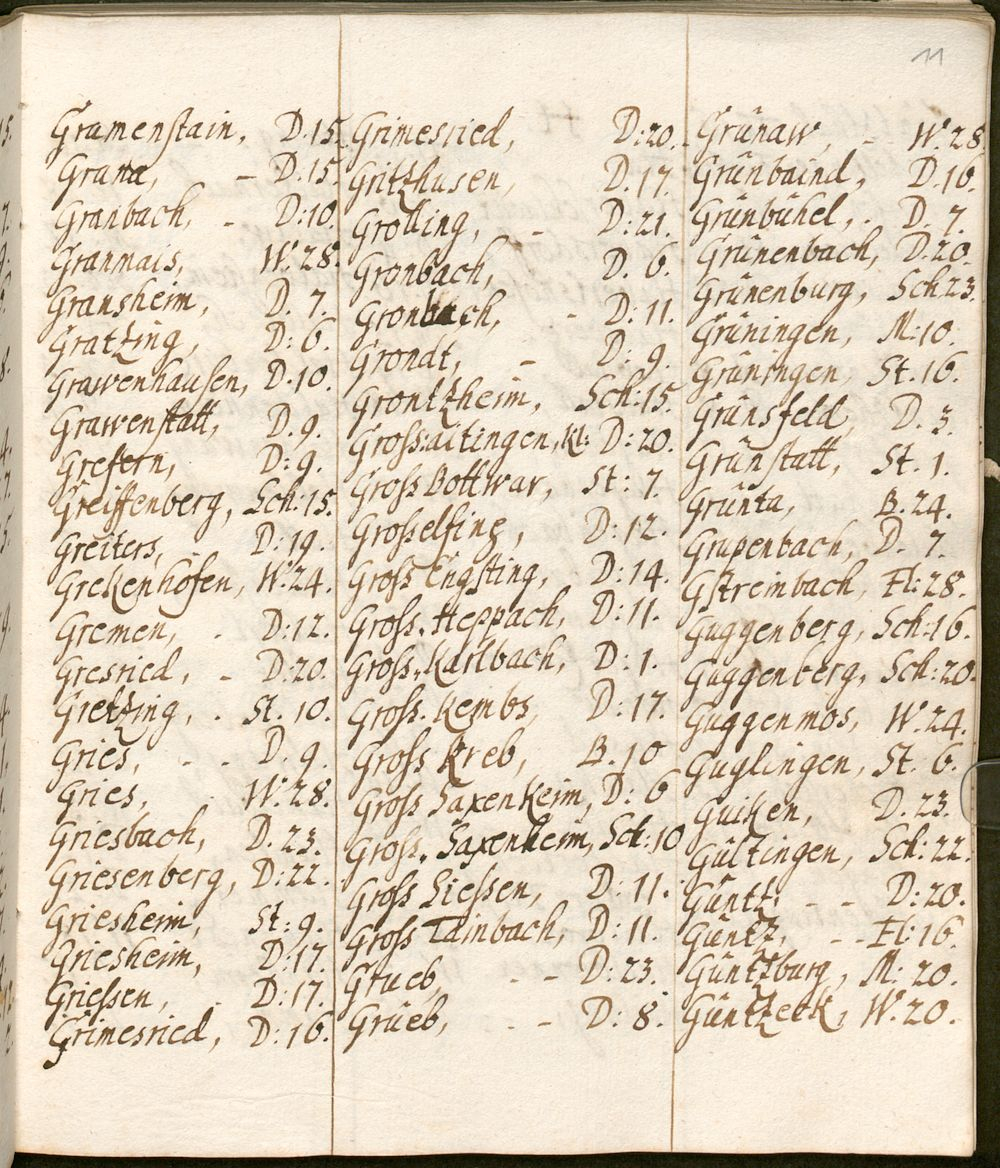 11
Gramenstain, D.15.
Grana, - D.15.
Granbach, - D:10.
Granmais, W.28.
Gransheim, D. 7.
Gratzing, D: 6.
Grawenhausen, D.10.
Grawenstatt, D. 9.
Grefern, D: 9.
Greiffenberg, Sch:15.
Greiters, D:19.
Grekenhofen, W.24.
Gremen, . D:12.
Gresried, - D:20.
Gretzing, . St. 10.
Gries, . - D. 9.
Gries, W.28.
Griesbach, D. 23.
Griesenberg, D:22.
Griesheim, St: 9.
Griesheim, D:17.
Griessen, D:17.
Grimesried, D:16.
Grimesried, D:20.
Gritzhusen, D.17.
Grolling, - D:21.
Gronbach, D. 6.
Gronbach, - D: 11.
Grondt, - D: 9.
Grontzheim, Sch:15.
Gross:aitingen, Kl: D:20.
Gross Bottwar, St: 7.
Grosselfing, D:12.
Gross Engsting, D:14.
Gross. Heppach, D: 11.
Gross. Karlbach, D: 1.
Gross. Kembs, D:17.
Gross Kreb, B. 10
Gross Saxenkeim, D: 6
Gross. Saxenheim, Sch:10
Gross Siessen, D: 11.
Gross Tainbach, D: 11.
Grueb, - - D:23.
Grüeb, - - D: 8.
Grünaw, - W.28.
Grünbaind, D.16.
Grünbühel, . D. 7.
Grünenbach, D.20.
Grünenburg, Sch23.
Grüningen, M:10.
Grüningen, St.16.
Grünsfeld, D. 3.
Grünstatt, St. 1.
Grünta, B.24.
Grupenbach, D. 7.
Gstreimbach, Fl:28.
Guggenberg, Sch:16.
Guggenberg, Sch:20.
Guggenmos, W.24.
Guglingen, St. 6.
Guiken, D. 23.
Gültingen, Sch:22.
Güntt, - - D:20.
Güntz, - - Fl:16.
Güntzburg, M: 20.
Güntzeck, W.20.